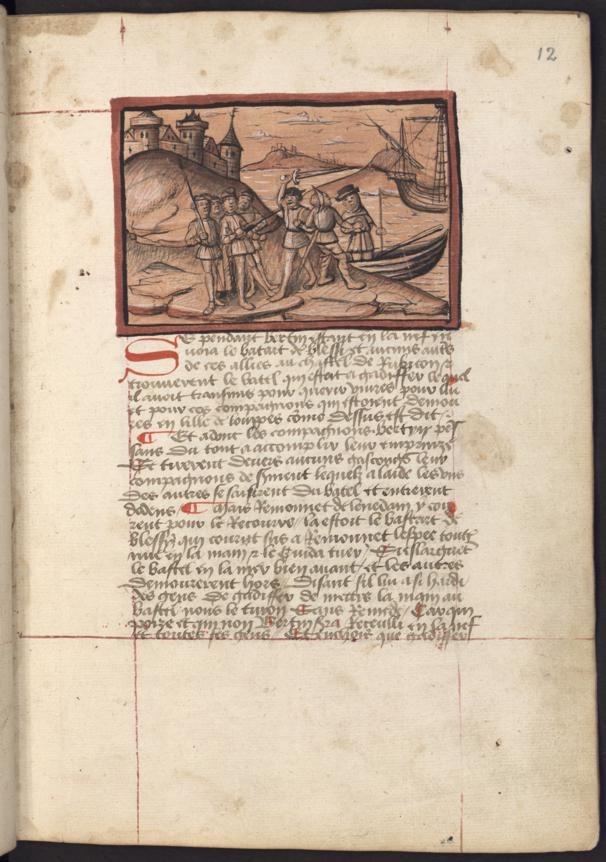 12
Se pendant bertin estant en la nef en
uoia le batart de blessi et aucuns aults
de ces allies au chastel de Rubicon et
trouuerent le batel qui estoit a gadiffer le quel
il auoit transmis pour querir viures pour lui
et pour ces compagnons qui estoient demou
res en lille de louppes come dessus est dit
Et adont les compagnons bertin pen
sans du tout a accomplir leur emprinze
se tirerent deuers aucuns gascongs leur
compagnons de serment lequelz a laide les vns
des autres se saisirent du batel et entrerent
dedens / Mais Remonnet de leuedam y cou
rent pour le Recouurer / la estoit le bastart de
blessy qui courut sus a Remonnet lespee toute
nue en la main & le Cuida tuer / eslarguet
le bastel en la mer bien auant et les autres
demourerent hors / disant sil lu a si hardi
des gens De gadiffer de mettre la main au
bastel nous le turon sans Remede / Car qui
poize et qui non bertin sera Receulli en la nef
et toutes ses gens / Et enchois que gadiffer